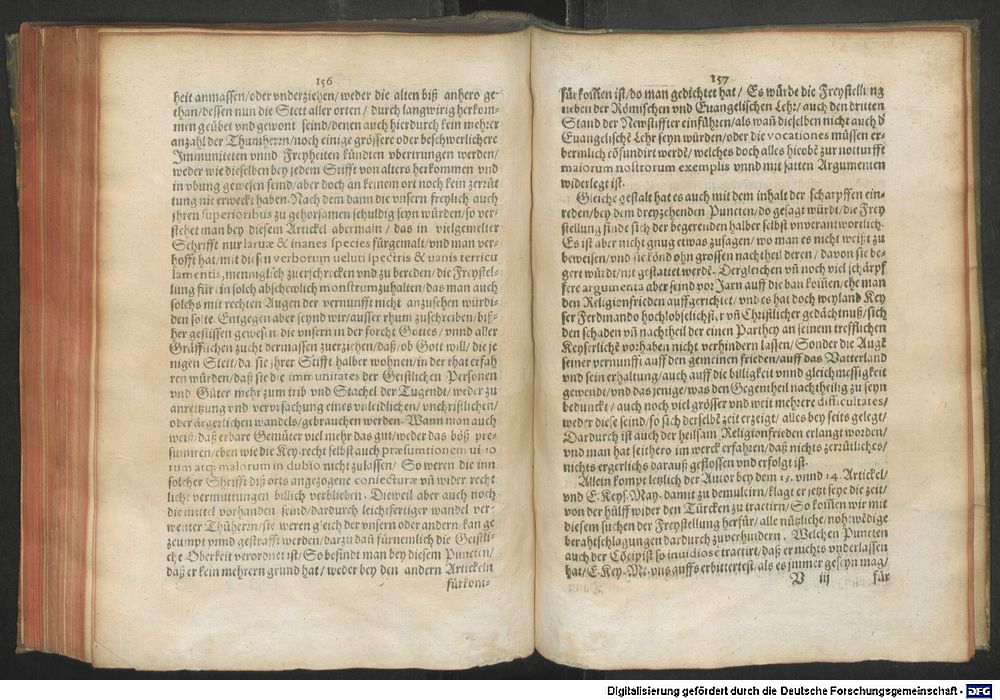 156
heit anmassen/oder vnderziehen/weder die alten biß anhero ge-
than/dessen nun die Stett aller orten/durch langwirig herkom-
men geübet vnd gewont seind/denen auch hierdurch kein mehrer
anzahl der Thumherrn/noch einige grössere oder beschwerlichere
Immuniteten vnnd Freyheiten kündten vbertrungen werden/
weder wie dieselben bey jedem Stifft von alters herkommen vnd
in vbung gewesen seind/aber doch an keinem ort noch kein zerrüt
tung nie erweckt haben. Nach dem dann die vnsern freylich auch
jhren superioribus zu gehorsamen schuldig seyn würden/so ver-
stehet man bey diesem Artickel abermaln/das in vielgemelter
Schrifft nur laruæ & inanes species fürgemalt/vnd man ver-
hofft hat/mit diesen verborum ueluti spectris & vanis terricu
lamentis, menniglich zuerschrecken vnd zu bereden/die Freystel-
lung für ein solch abschewlich monstrum zuhalten/das man auch
solchs mit rechten Augen der vernunfft nicht anzusehen würdi-
den solte. Entgegen aber seynd wir/ausser rhum zuschreiben/biß-
her geflissen gewesen die vnsern in der forcht Gottes/vnnd aller
Gräfflichen zucht dermassen zuerziehen/daß/ob Gott will/die je
nigen Stett/da sie jhrer Stifft halber wohnen/in der that erfah
ren würden/daß sie die immunitates der Geistlichen Personen
vnd Güter mehr zum trib vnd Stachel der Tugendt/weder zu
anreitzung vnd verursachung eines vnleidlichen/vnchristlichen/
oder ärgerlichen wandels/gebrauchen werden. Wann man auch
weiß/daß erbare Gemüter viel mehr das gut/weder das böß præ-
sumiren/eben wie die Key. recht selbst auch præsumtionem uitio
rum atq; malorum in dubio nicht zulassen/So weren die inn
solcher Schrifft diß orts angezogene coniecturæ vñ wider recht
liche vermutungen billich verblieben. Dieweil aber auch noch
die mittel vorhanden seind/dardurch leichtfertiger wandel ver-
wenter Thüherrn/sie weren gleich der vnsern oder andern/kan ge
zeumpt vnnd gestrafft werden/darzu dañ fürnemlich die Geistli-
che Oberkeit verordnet ist/So befindt man bey diesem Puncten/
daß er kein mehrern grund hat/weder bey den andern Artickeln
fürkom-
157
fürkommen ist/do man gedichtet hat/Es würde die Freystellung
neben der Römischen vnd Euangelischen Lehr/auch den dritten
Stand der Newstiffter einführen/als wañ dieselben nicht auch d
Euangelischē Lehr seyn würden/oder die vocationes müssen er-
bermlich cōfundirt werdē/welches doch alles hieobē zur notturfft
maiorum nostrorum exemplis vnnd mit satten Argumenten
widerlegt ist.
Gleiche gestalt hat es auch mit dem inhalt der scharpffen ein-
reden/bey dem dreyzehenden Puncten/do gesagt würdt/die Frey
stellung finde sich der begerenden halber selbst vnverantwortlich.
Es ist aber nicht gnug etwas zusagen/wo man es nicht weißt zu
beweisen/vnd sie könd ohn grossen nachtheil deren/davon sie be-
gert würdt/nit gestattet werdē. Dergleichen vñ noch viel schärpf
fere argumenta aber seind vor Jarn auff die ban komen/ehe man
den Religionfrieden auffgerichtet/vnd es hat doch weyland Key
ser Ferdinando hochlobselichster vñ Christlicher gedächtnuß/sich
den schaden vñ nachtheil der einen Parthey an seinem trefflichen
Keyserlichē vorhaben nicht verhindern lassen/Sonder die Augē
seiner vernunfft auff den gemeinen frieden/auff das Vatterland
vnd sein erhaltung/auch auff die billigkeit vnnd gleichmessigkeit
gewendt/vnd das jenige/was den Gegentheil nachtheilig zu seyn
bedunckt/auch noch viel grösser vnd weit mehrere difficultates/
weder diese seind/so sich derselbē zeit erzeigt/alles bey seits gelegt/
Dardurch ist auch der heilsam Religionfrieden erlangt worden/
vnd man hat seithero im werck erfahren/daß nichts zerrütliches/
nichts ergerlichs darauß geflossen vnd erfolgt ist.
Allein kompt letzlich der Autor bey dem 13. vnnd 14. Artickel/
vnd E. Keys. May. damit zu demulcirn/klagt er jetzt seye die zeit/
von der hülff wider den Türcken zu tractirn/So kommen wir mit
diesem suchen der Freystellung herfür/alle nützliche/notwēdige
berahtschlagungen dardurch zuverhindern. Welchen Puncten
auch der Cōcipist so inuidiosè tractirt/daß er nichts vnderlassen
hat/E. Key. Mt. vns auffs erbittertest/als es jmmer geseyn mag/
V iij für
Digitalisierung gefördert durch die Deutsche Forschungsgemeinschaft - DFG